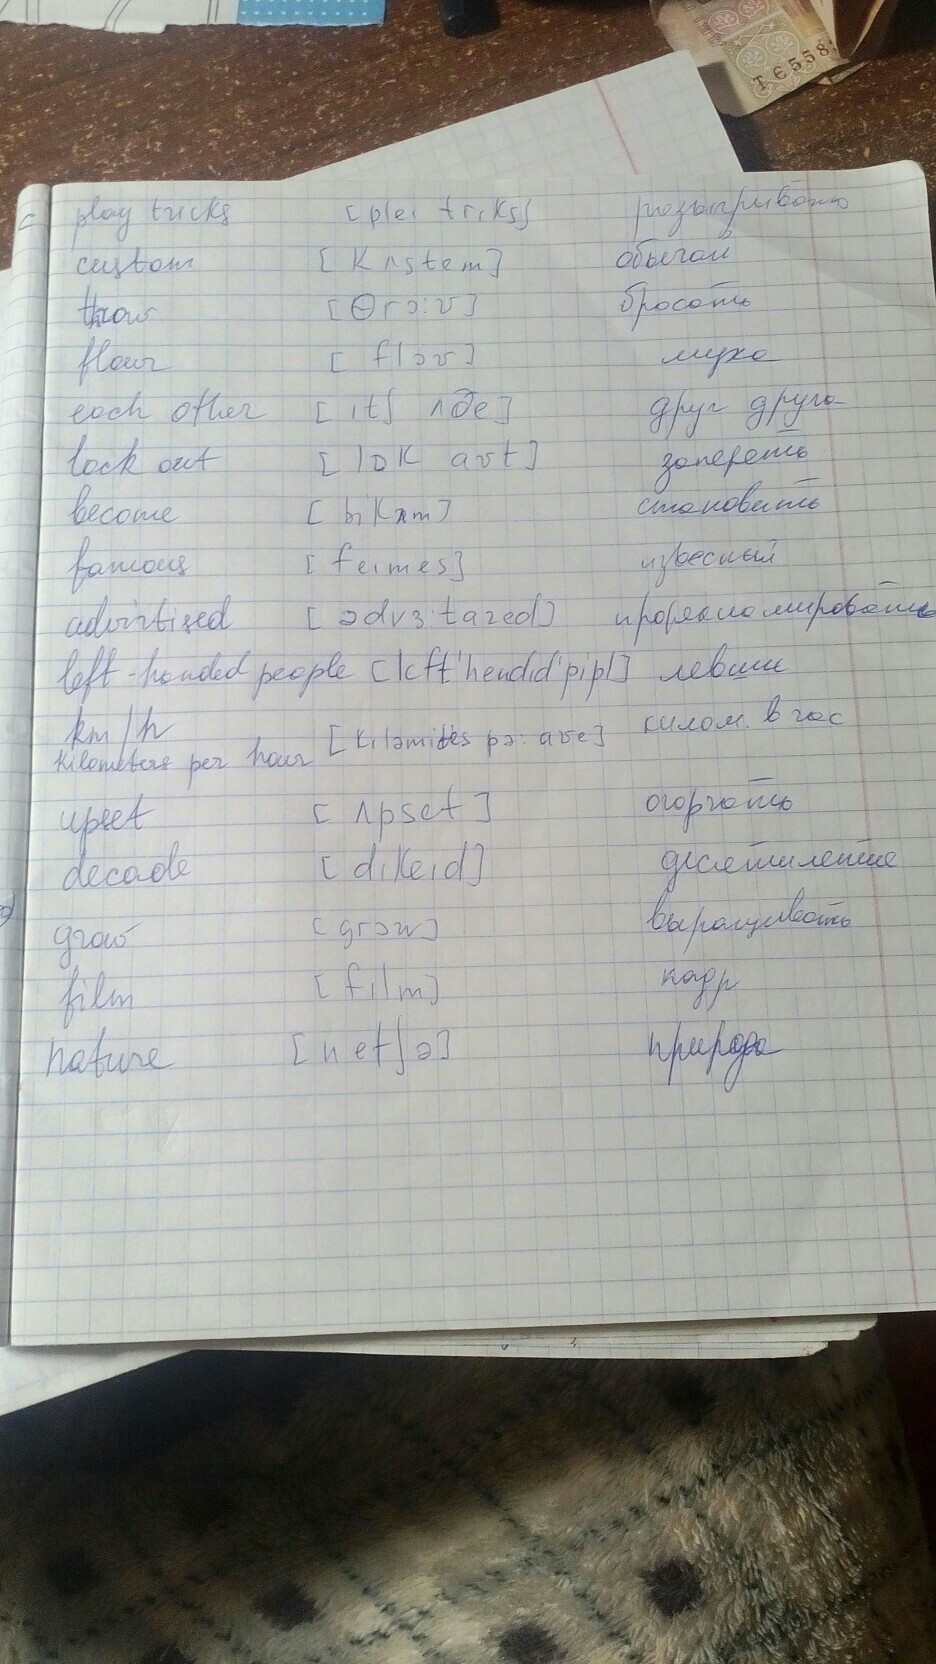 ТЄ558
c play tricks [plei triks] розыгрывать
custom [kʌstem] обычай
throw [θrɔ:ʊ] бросать
flour [flɔʊ] мука
each other [ɪtʃ ʌðe] друг друга
lock out [lɒk aʊt] запереть
become [bɪkʌm] становить
famous [feɪmes] извесный
advirtised [ədvɜ:tazed] прорекламировать
left-handed people [left'hendid'pipl] левши
km/h [kiləmites pə: aʊe] килом. в час
kilometers per hour
upset [ʌpset] огорчать
decade [dikeid] десятилетие
grow [grəw] выращивать
film [film] кадр
nature [netʃə] природа